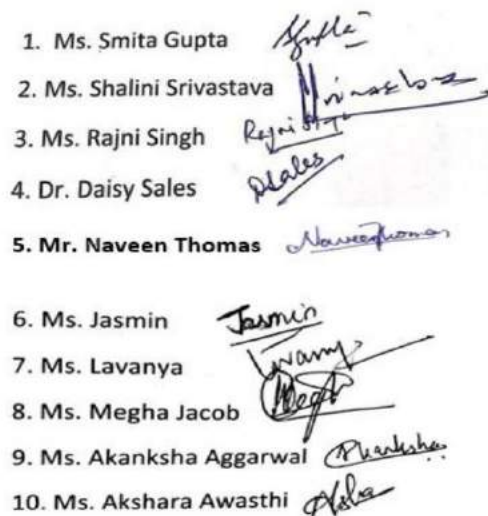 1. Ms. Smita Gupta Gupta
2. Ms. Shalini Srivastava
3. Ms. Rajni Singh Rajni
4. Dr. Daisy Sales DSales
5. Mr. Naveen Thomas NaveenThomas
6. Ms. Jasmin Jasmin
7. Ms. Lavanya
8. Ms. Megha Jacob
9. Ms. Akanksha Aggarwal Akanksha
10. Ms. Akshara Awasthi